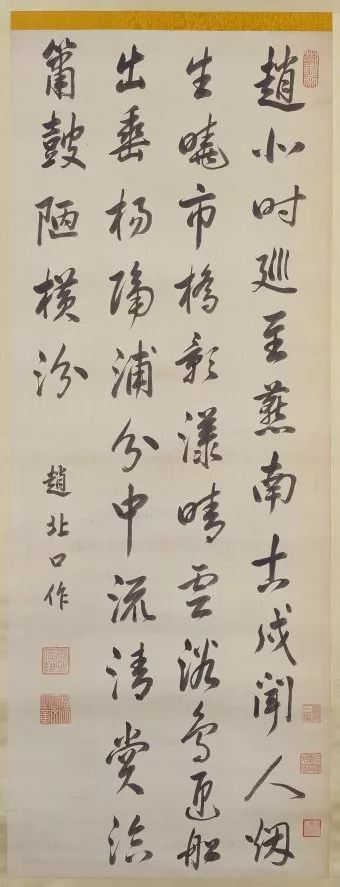 趙北时廵至燕南古戍聞人烟
生曉市橋影漾晴雲浴鳥迎船
出垂楊隔浦分中流清賞洽
簫鼓陋橫汾
趙北口作